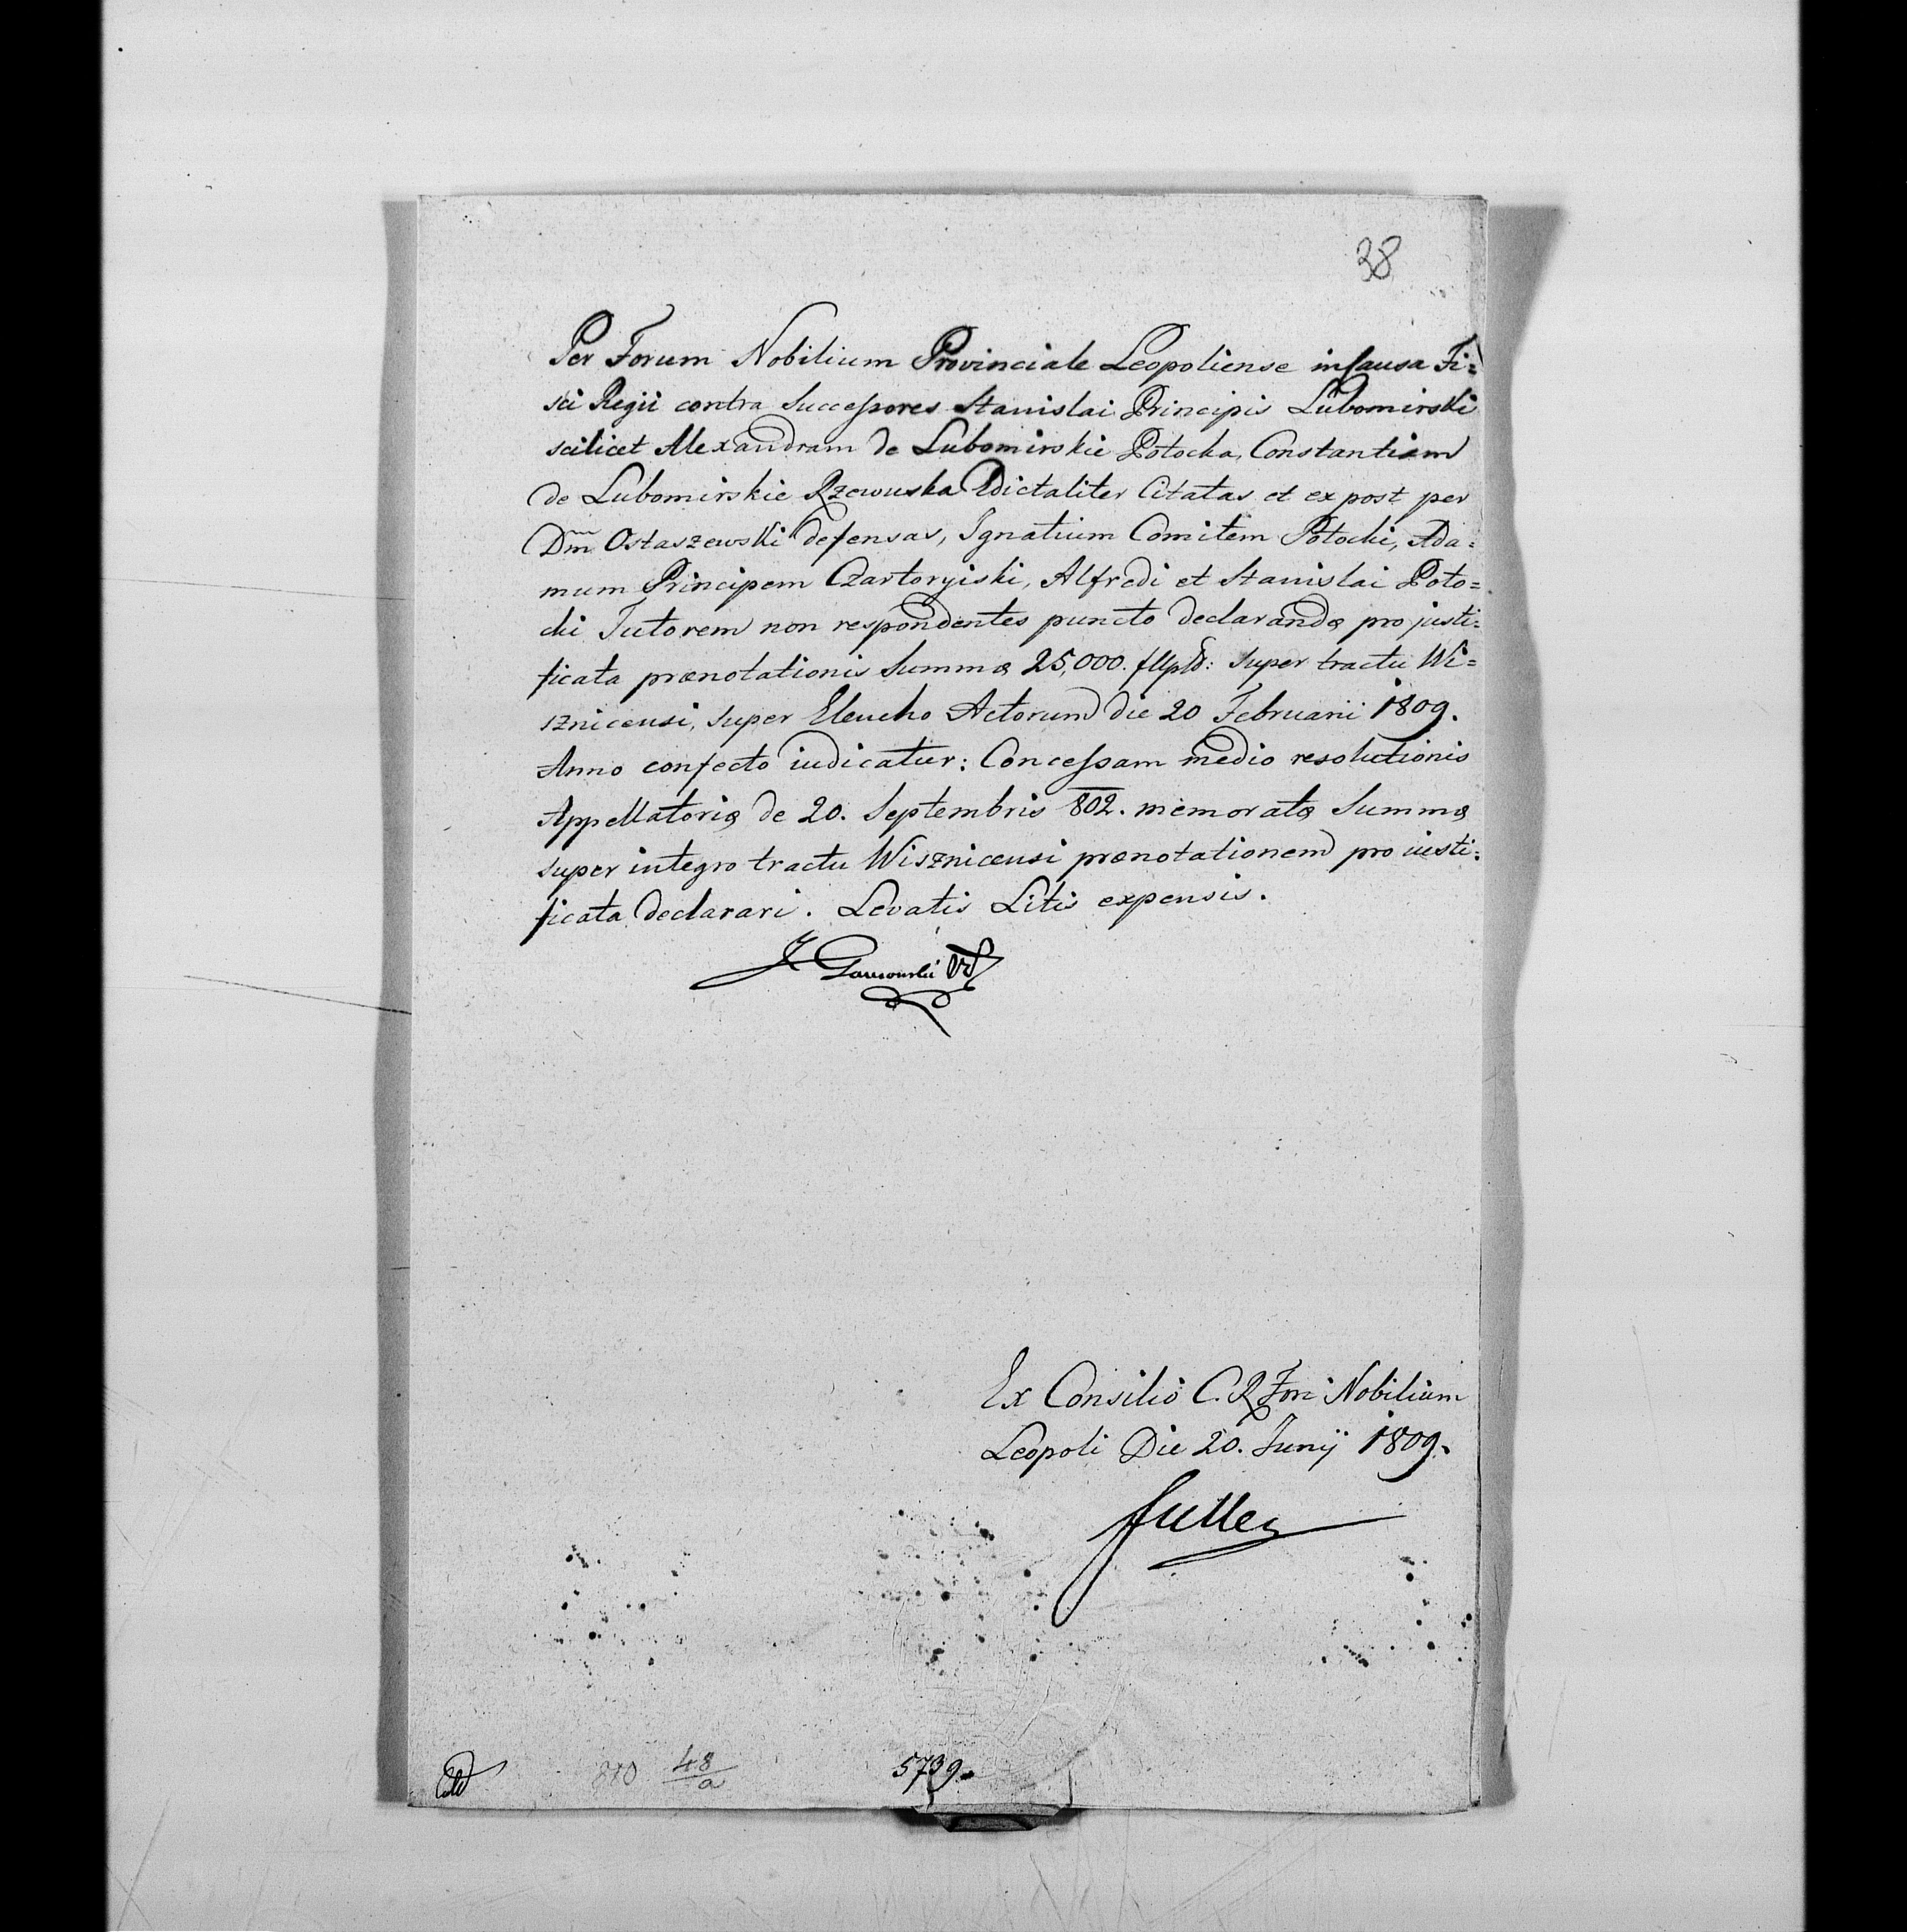 38
Per Forum Nobilium Provinciale Leopoliense in Causa Fi=
sci Regii contra Successores Stanislai Principis Lubomirski
scilicet Alexandram de Lubomirskie Potocka, Constantiam
de Lubomirskie Rzewuska Edictaliter Citatas et ex post per
Dm̃ Ostaszewski defensas, Ignatium Comitem Potocki, Ada=
mum Principem Czartoryiski, Alfredi et Stanislai Poto=
cki Tutorem non respondentes puncto declarandæ pro justi=
ficata prænotationis Summæ 25,000. super tractu Wi=
sznicensi, super Elencho Actorum die 20 Februarii 1809.
Anno confecto iudicatur: Concessam medio resolutionis
Appellatoriæ de 20. Septembris 802. memoratæ Summæ
super integro tractu Wisznicensi prænotationem pro iusti=
ficata declarari. Levatis Litis expensis.
Ex Consilio C. R. Fori Nobilium
Leopoli Die 20. Junij 1809.
810 48/a 5739.